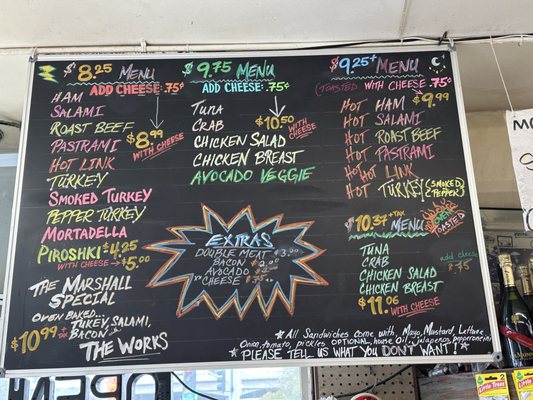 $8.25 MENU
ADD CHEESE: .75¢
HAM
SALAMI
ROAST BEEF
PASTRAMI
HOT LINK
TURKEY
SMOKED TURKEY
PEPPER TURKEY
MORTADELLA
PIROSHKI $4.25
WITH CHEESE → $5.00
$8.99
WITH CHEESE
THE MARSHALL
SPECIAL
OVEN BAKED...
TURKEY, SALAMI,
BACON
$10.99 + TAX
THE WORKS
$9.75 MENU
ADD CHEESE: .75¢
TUNA
CRAB
CHICKEN SALAD
CHICKEN BREAST
AVOCADO VEGGIE
$10.50
WITH CHEESE
EXTRAS
DOUBLE MEAT $3.00
BACON $2.00
AVOCADO
CHEESE $.75
$9.25+ MENU
(TOASTED WITH CHEESE .75¢
$9.99
HOT HAM
HOT SALAMI
HOT ROAST BEEF
HOT PASTRAMI
HOT LINK
HOT TURKEY (SMOKED
(PEPPER)
$10.37 + TAX
MENU
OVEN
TOASTED
TUNA
CRAB
CHICKEN SALAD
CHICKEN BREAST
add cheese
$.75
$11.06 WITH CHEESE
* ALL SANDWICHES COME WITH, MAYO, MUSTARD, LETTUCE,
ONION, TOMATO, PICKLES OPTIONAL, HOUSE OIL, JALAPENOS, PEPPERONCINI
* PLEASE TELL US WHAT YOU DON'T WANT!
OPEN
Little Trees